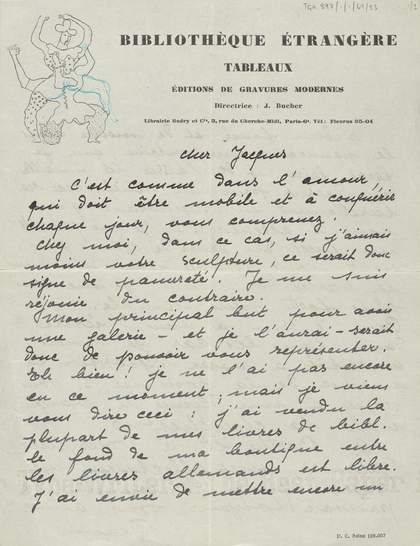 TGA 897/1/1/61/23 1/2
BIBLIOTHÈQUE ÉTRANGÈRE
TABLEAUX
ÉDITIONS DE GRAVURES MODERNES
Directrice : J. Bucher
Librairie Budry et Cie, 3, rue du Cherche-Midi, Paris-6e. Tél: Fleurus 05-04
Cher Jacques
C'est comme dans l'amour,
qui doit être mobile et à conquérir
chaque jour, vous comprenez.
Chez moi, dans ce cas, si j'aimais
moins votre sculpture, ce serait donc
signe de pauvreté. Je me suis
réjouie du contraire.
Mon principal but pour avoir
une galerie - et je l'aurai - serait
donc de pouvoir vous représenter.
Eh bien! je ne l'ai pas encore
en ce moment; mais je viens
vous dire ceci : j'ai vendu la
plupart de mes livres de bibl.
le fond de ma boutique entre
les livres allemands est libre.
J'ai envie de mettre encore un
R. C. Seine